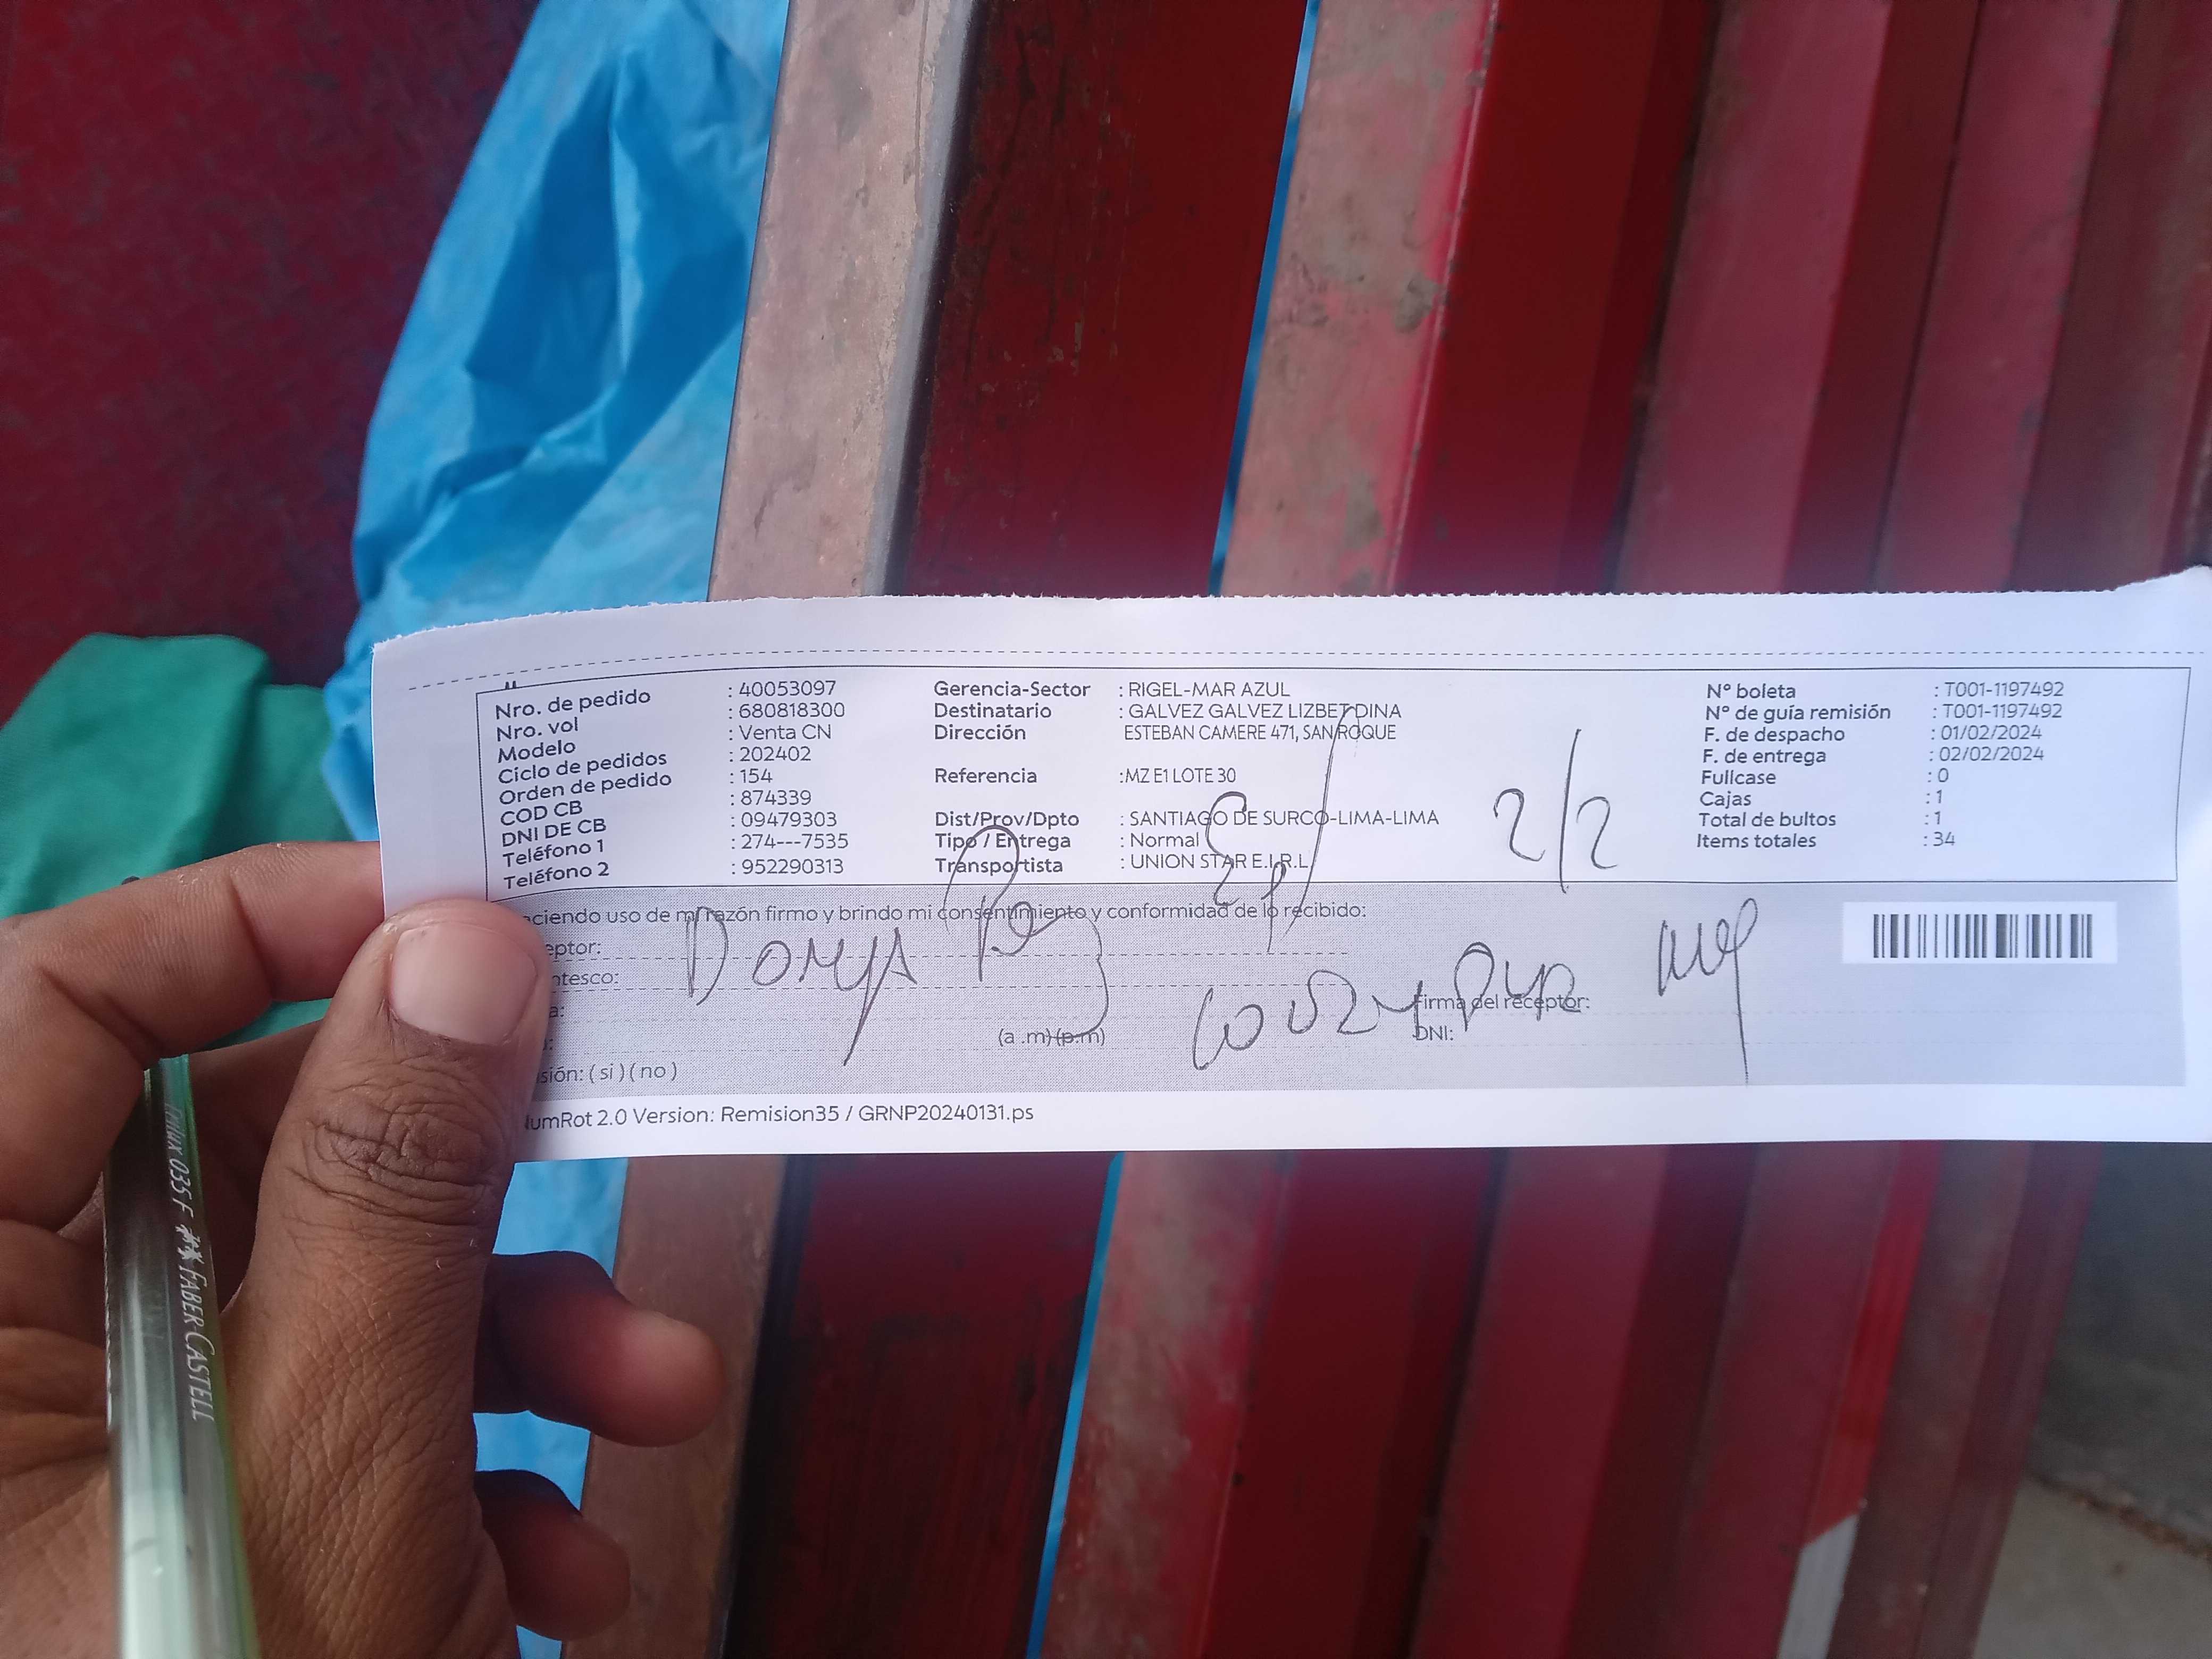 Nro. de pedido : 40053097
Nro. vol : 680818300
Modelo : Venta CN
Ciclo de pedidos : 202402
Orden de pedido : 154
COD CB : 874339
DNI DE CB : 09479303
Teléfono 1 : 274---7535
Teléfono 2 : 952290313
Gerencia-Sector : RIGEL-MAR AZUL
Destinatario : GALVEZ GALVEZ LIZBET DINA
Dirección ESTEBAN CAMERE 471, SAN ROQUE
Referencia :MZ E1 LOTE 30
Dist/Prov/Dpto : SANTIAGO DE SURCO-LIMA-LIMA
Tipo / Entrega : Normal
Transportista : UNION STAR E.I.R.L
N° boleta : T001-1197492
N° de guía remisión : T001-1197492
F. de despacho : 01/02/2024
F. de entrega : 02/02/2024
Fullcase : 0
Cajas : 1
Total de bultos : 1
Items totales : 34
2/2
aciendo uso de mi razón firmo y brindo mi consentimiento y conformidad de lo recibido:
eptor:
ntesco:
a:
:
(a .m)(p.m)
Firma del receptor:
DNI:
sión: ( si ) ( no )
NumRot 2.0 Version: Remision35 / GRNP20240131.ps
Trilux 035 F FABER-CASTELL